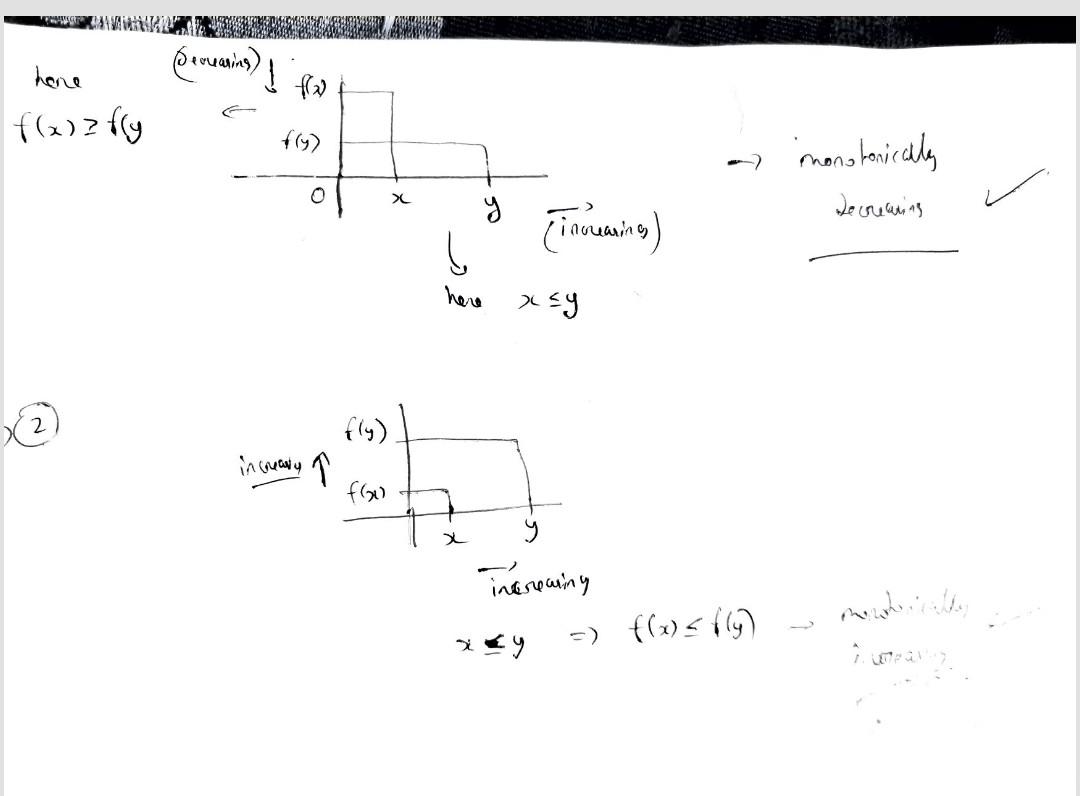 here
(Decreasing) ↓
f(x) ≥ f(y
←
f(x)
f(y)
0 x y
(increasing)
→ monotonically
decreasing ✓
here x ≤ y
②
f(y)
increasing ↑
f(x)
x y
increasing
x ≤ y => f(x) ≤ f(y) → monotonically
increasing